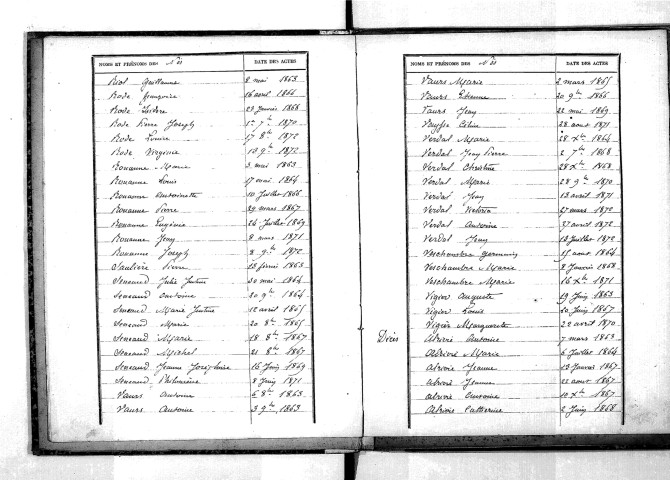 NOMS ET PRÉNOMS DES Nés DATE DES ACTES
Riol Guillaume 2 mai 1863
Rode françoise 16 avril 1866
Rode Isidore 29 Janvier 1868
Rode Pierre Joseph 1er 7bre 1870
Rode Louise 17 8bre 1872
Rode Virginie 13 9bre 1872
Rouanne Marie 3 mai 1863
Rouanne Louis 17 mai 1864
Rouanne Antoinette 10 Juillet 1866
Rouanne Pierre 29 mars 1867
Rouanne Eugénie 26 Juillet 1869
Rouanne Jean 8 mars 1871
Rouanne Joseph 8 9bre 1872
Pierre 25 février 1863
Seneaud Julie Justine 30 mai 1864
Seneaud Antoine 20 9bre 1864
Seneaud Marie Justine 12 avril 1865
Seneaud Marie 20 8bre 1865
Seneaud Marie 18 8bre 1867
Seneaud Michel 21 8bre 1867
Seneaud Jeanne Joséphine 15 Juin 1869
Seneaud Philomène 8 Juin 1871
Vaurs Antoine 6 8bre 1863
Vaurs Antoine 3 9bre 1863
NOMS ET PRÉNOMS DES Nés DATE DES ACTES
Vaurs Marie 2 mars 1865
Vaurs Etienne 20 9bre 1866
Vaurs Jean 22 mai 1869
Vaysse Céline 28 aout 1871
Verdal Marie 28 Xbre 1864
Verdal Jean Pierre 2 7bre 1868
Verdal Christine 28 Xbre 1868
Verdal Marie 28 9bre 1870
Verdal Jean 13 avril 1871
Verdal Victoria 27 mars 1872
Verdal Antoine 27 avril 1872
Verdal Jean 13 Juillet 1872
Veschambre Germain 25 aout 1864
Veschambre Marie 8 Janvier 1868
Veschambre Marie 16 Xbre 1871
Vigier Auguste 29 Juin 1863
Vigier Louis 20 Juin 1867
Vigier Marguerite 22 avril 1870
Décès Alrivie Antoine 7 mars 1863
Alrivie Marie 6 Juillet 1864
Alrivie Jeanne 13 Janvier 1867
Alrivie Jeanne 22 aout 1867
Alrivie Antoine 10 Xbre 1867
Alrivie Catherine 2 Juin 1868